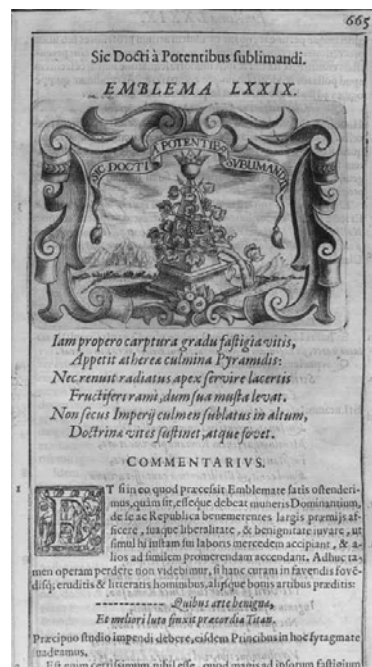 665
Sic Docti à Potentibus ſublimandi.
EMBLEMA LXXIX.
SIC DOCTI A POTENTIB SVBLIMANDI
Iam propero carptura gradu faſtigia vitis,
Appetit æthereæ culmina Pyramidis:
Nec renuit radiatus apex ſervire lacertis
Fructiferi rami, dum ſua muſta levat.
Non ſecus Imperij culmen ſublatus in altum,
Doctrinæ vites ſuſtinet, atque fovet.
COMMENTARIVS.
1 ET ſi in eo quod præceſſit Emblemate ſatis oſtenderi-
mus, quàm ſit, eſſeque debeat muneris Dominantium,
de ſe ac Republica benemerentes largis præmijs af-
ficere, ſuaque liberalitate, & benignitate iuvare, ut
ſimul hi inſtam ſui laboris mercedem accipiant, & a-
lios ad ſimilem promerendam accendant. Adhuc ta-
men operam perdere non videbimur, ſi hanc curam in favendis fove-
diſq; eruditis & litteratis hominibus, alijſque bonis artibus præditis:
---------- Quibus arte benigna,
Et meliori luto finxit præcordia Titan.
Præcipuo ſtudio impendi debere, eiſdem Principibus in hoc ſyntagmate
ſuadeamus.
Eſt enim certiſſimum nihil eſſe, quod magis ad ipſorum faſtigium